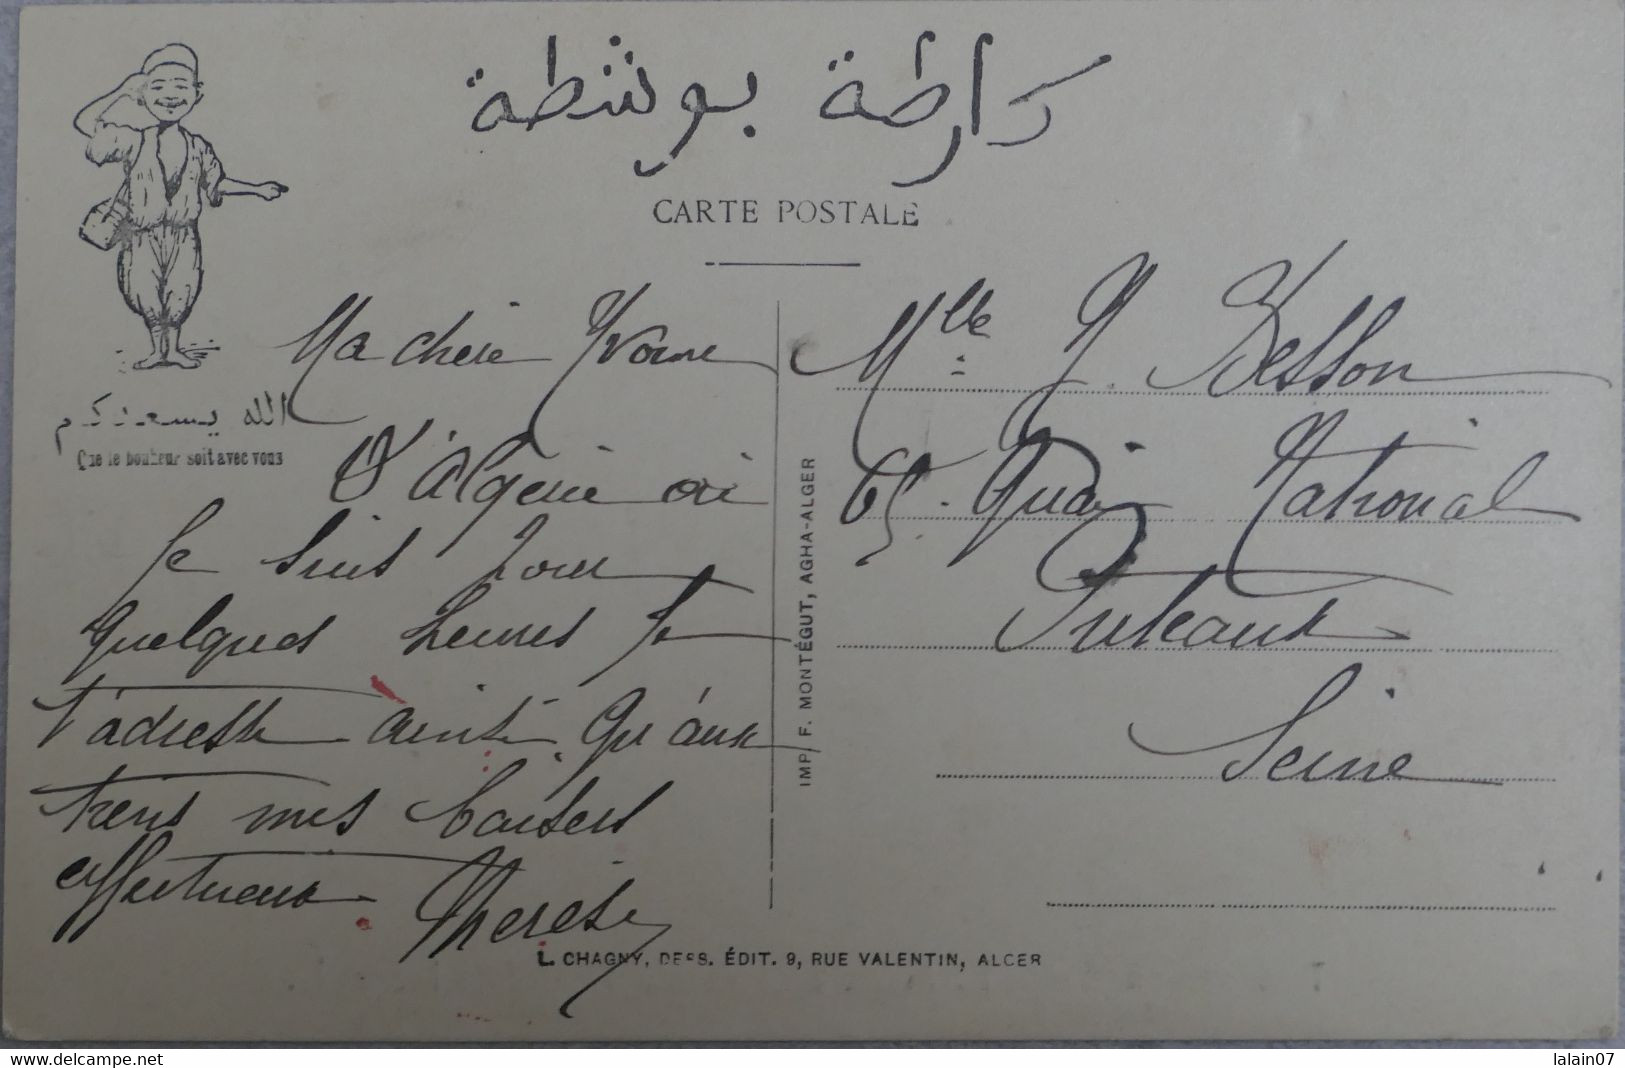 كارطة بوشطة
CARTE POSTALE
الله يسعدكم
Que le bonheur soit avec vous
Ma chère Yvonne
D'algérie où
je suis pour
quelques heures je
t'adresse ainsi qu'aux
tiens mes baisers
affectueux Thérèse
Mlle Y. Besson
65. Quai National
Puteaux
Seine
IMP. F. MONTÉGUT, AGHA-ALGER
L. CHAGNY, DESS. ÉDIT. 9, RUE VALENTIN, ALGER
lalain07
https://www.delcampe.net